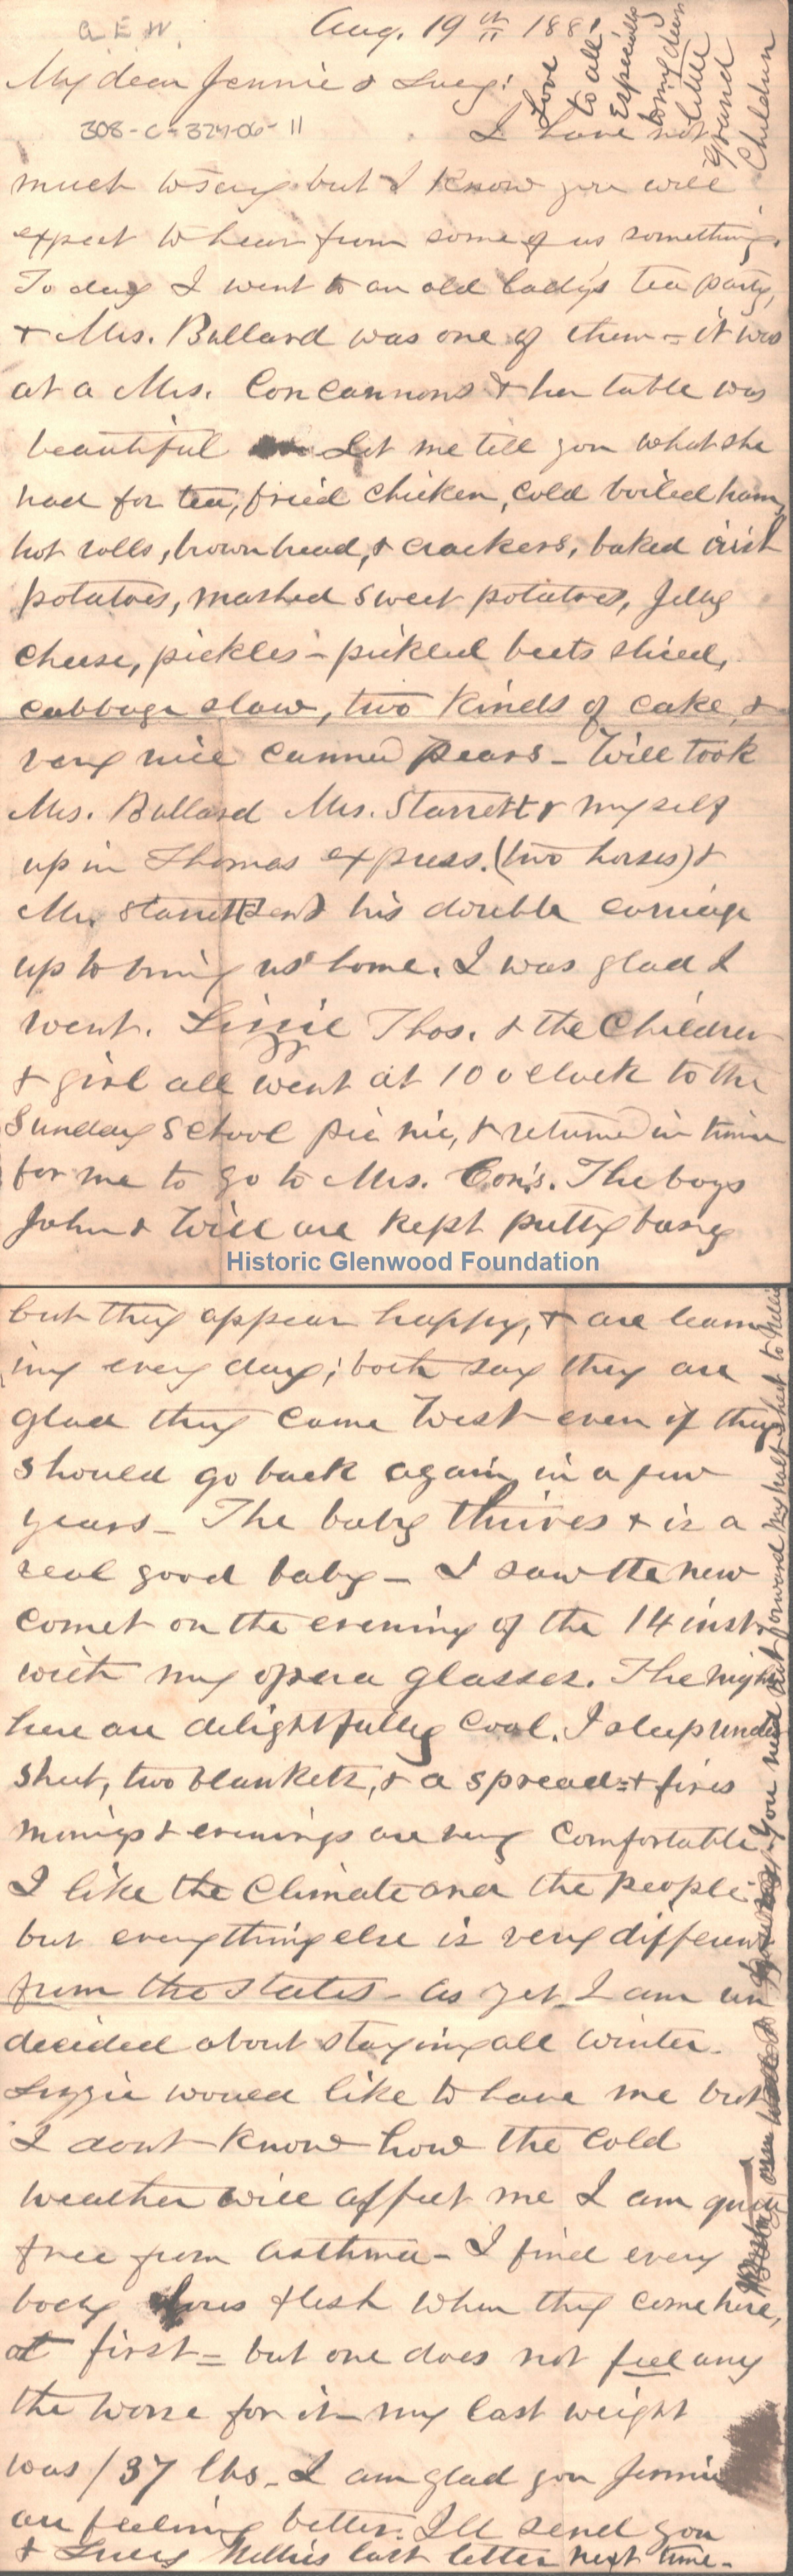 a E W.
Aug. 19th 1881
Love
to all
Especially
to my dear
little
grand
Children
My dear Jennie & Lucy!
308-C-324-06-11
I have not
much to say but I know you will
expect to hear from some of us something.
To day I went to an old lady's tea party,
& Mrs. Bullard was one of them = it was
at a Mrs. Concannons & her table was
beautiful Let me tell you what she
had for tea, fried chicken, cold boiled ham,
hot rolls, brown bread, & crackers, baked irish
potatoes, mashed sweet potatoes, Jelly
cheese, pickles - pickled beets sliced,
cabbage slaw, two kinds of cake, &
very nice canned pears - Will took
Mrs. Bullard Mrs. Starrett & myself
up in Thomas express. (two horses) &
Mr. Starrett send his double carriage
up to bring us home. I was glad I
went. Lizzie Thos. & the Children
& girl all went at 10 o clock to the
Sunday School pic nic, & returned in time
for me to go to Mrs. Con's. The boys
John & Will are kept pretty busy
Historic Glenwood Foundation
but they appear happy, & are learn
ing every day; both say they are
glad they came West even if they
should go back again in a few
years - The baby thrives & is a
real good baby - I saw the new
comet on the evening of the 14 inst.
with my opera glasses. The nights
here are delightfully cool. I sleep under
sheet, two blankets, & a spread = & fires
mornings & evenings are very comfortable
I like the Climate and the people
but everything else is very different
from the States - as yet I am un
decided about staying all winter.
Lizzie would like to have me but
I dont know how the cold
weather will affect me I am quite
free from asthma - I find every
body loses flesh when they come here,
at first = but one does not feel any
the worse for it - my last weight
was 137 lbs. I am glad you Jennie
are feeling better. Ill send you
& Lucy Nellies last letter next time -
You need not forward my half sheet to Nellie